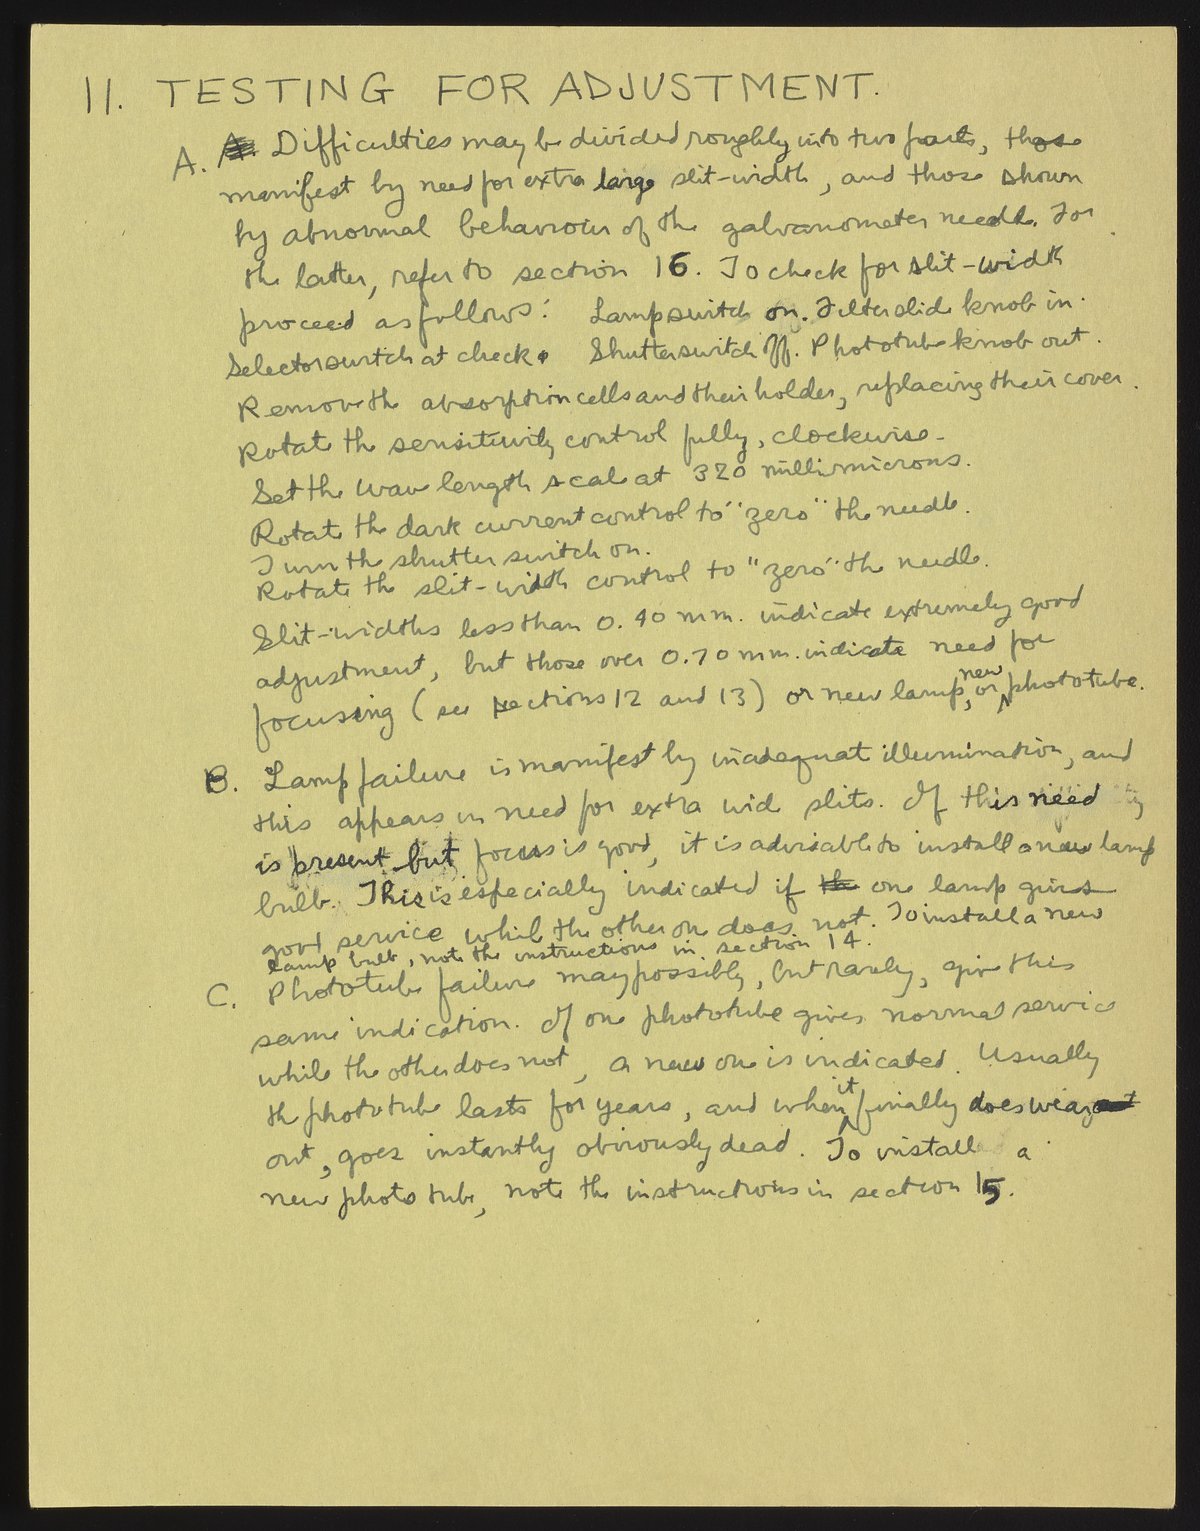 11. TESTING FOR ADJUSTMENT.
A. Difficulties may be divided roughly into two parts, those
manifest by need for extra large slit-width, and those shown
by abnormal behaviour of the galvanometer needle. For
the latter, refer to section 16. To check for slit-width
proceed as follows: Lamp switch on. Filter slide knob in.
Selector switch at check. Shutter switch off. Phototube knob out.
Remove the absorption cells and their holder, replacing their cover.
Rotate the sensitivity control fully, clockwise.
Set the wave length scale at 320 millimicrons.
Rotate the dark current control to "zero" the needle.
Turn the shutter switch on.
Rotate the slit-width control to "zero" the needle.
Slit-widths less than 0.40 mm. indicate extremely good
adjustment, but those over 0.70 mm. indicate need for
focusing (see sections 12 and 13) or new lamp, or new phototube.
B. Lamp failure is manifest by inadequat illumination, and
this appears in need for extra wide slits. If this need
is present but focus is good, it is advisable to install a new lamp
bulb. This is especially indicated if the one lamp gives
good service while the other one does not. To install a new
lamp bulb, note the instructions in section 14.
C. Phototube failure may possibly, but rarely, give this
same indication. If one phototube gives normal service
while the other does not, a new one is indicated. Usually
the phototube lasts for years, and when it finally does wear
out, goes instantly obviously dead. To install a
new photo tube, note the instructions in section 15.